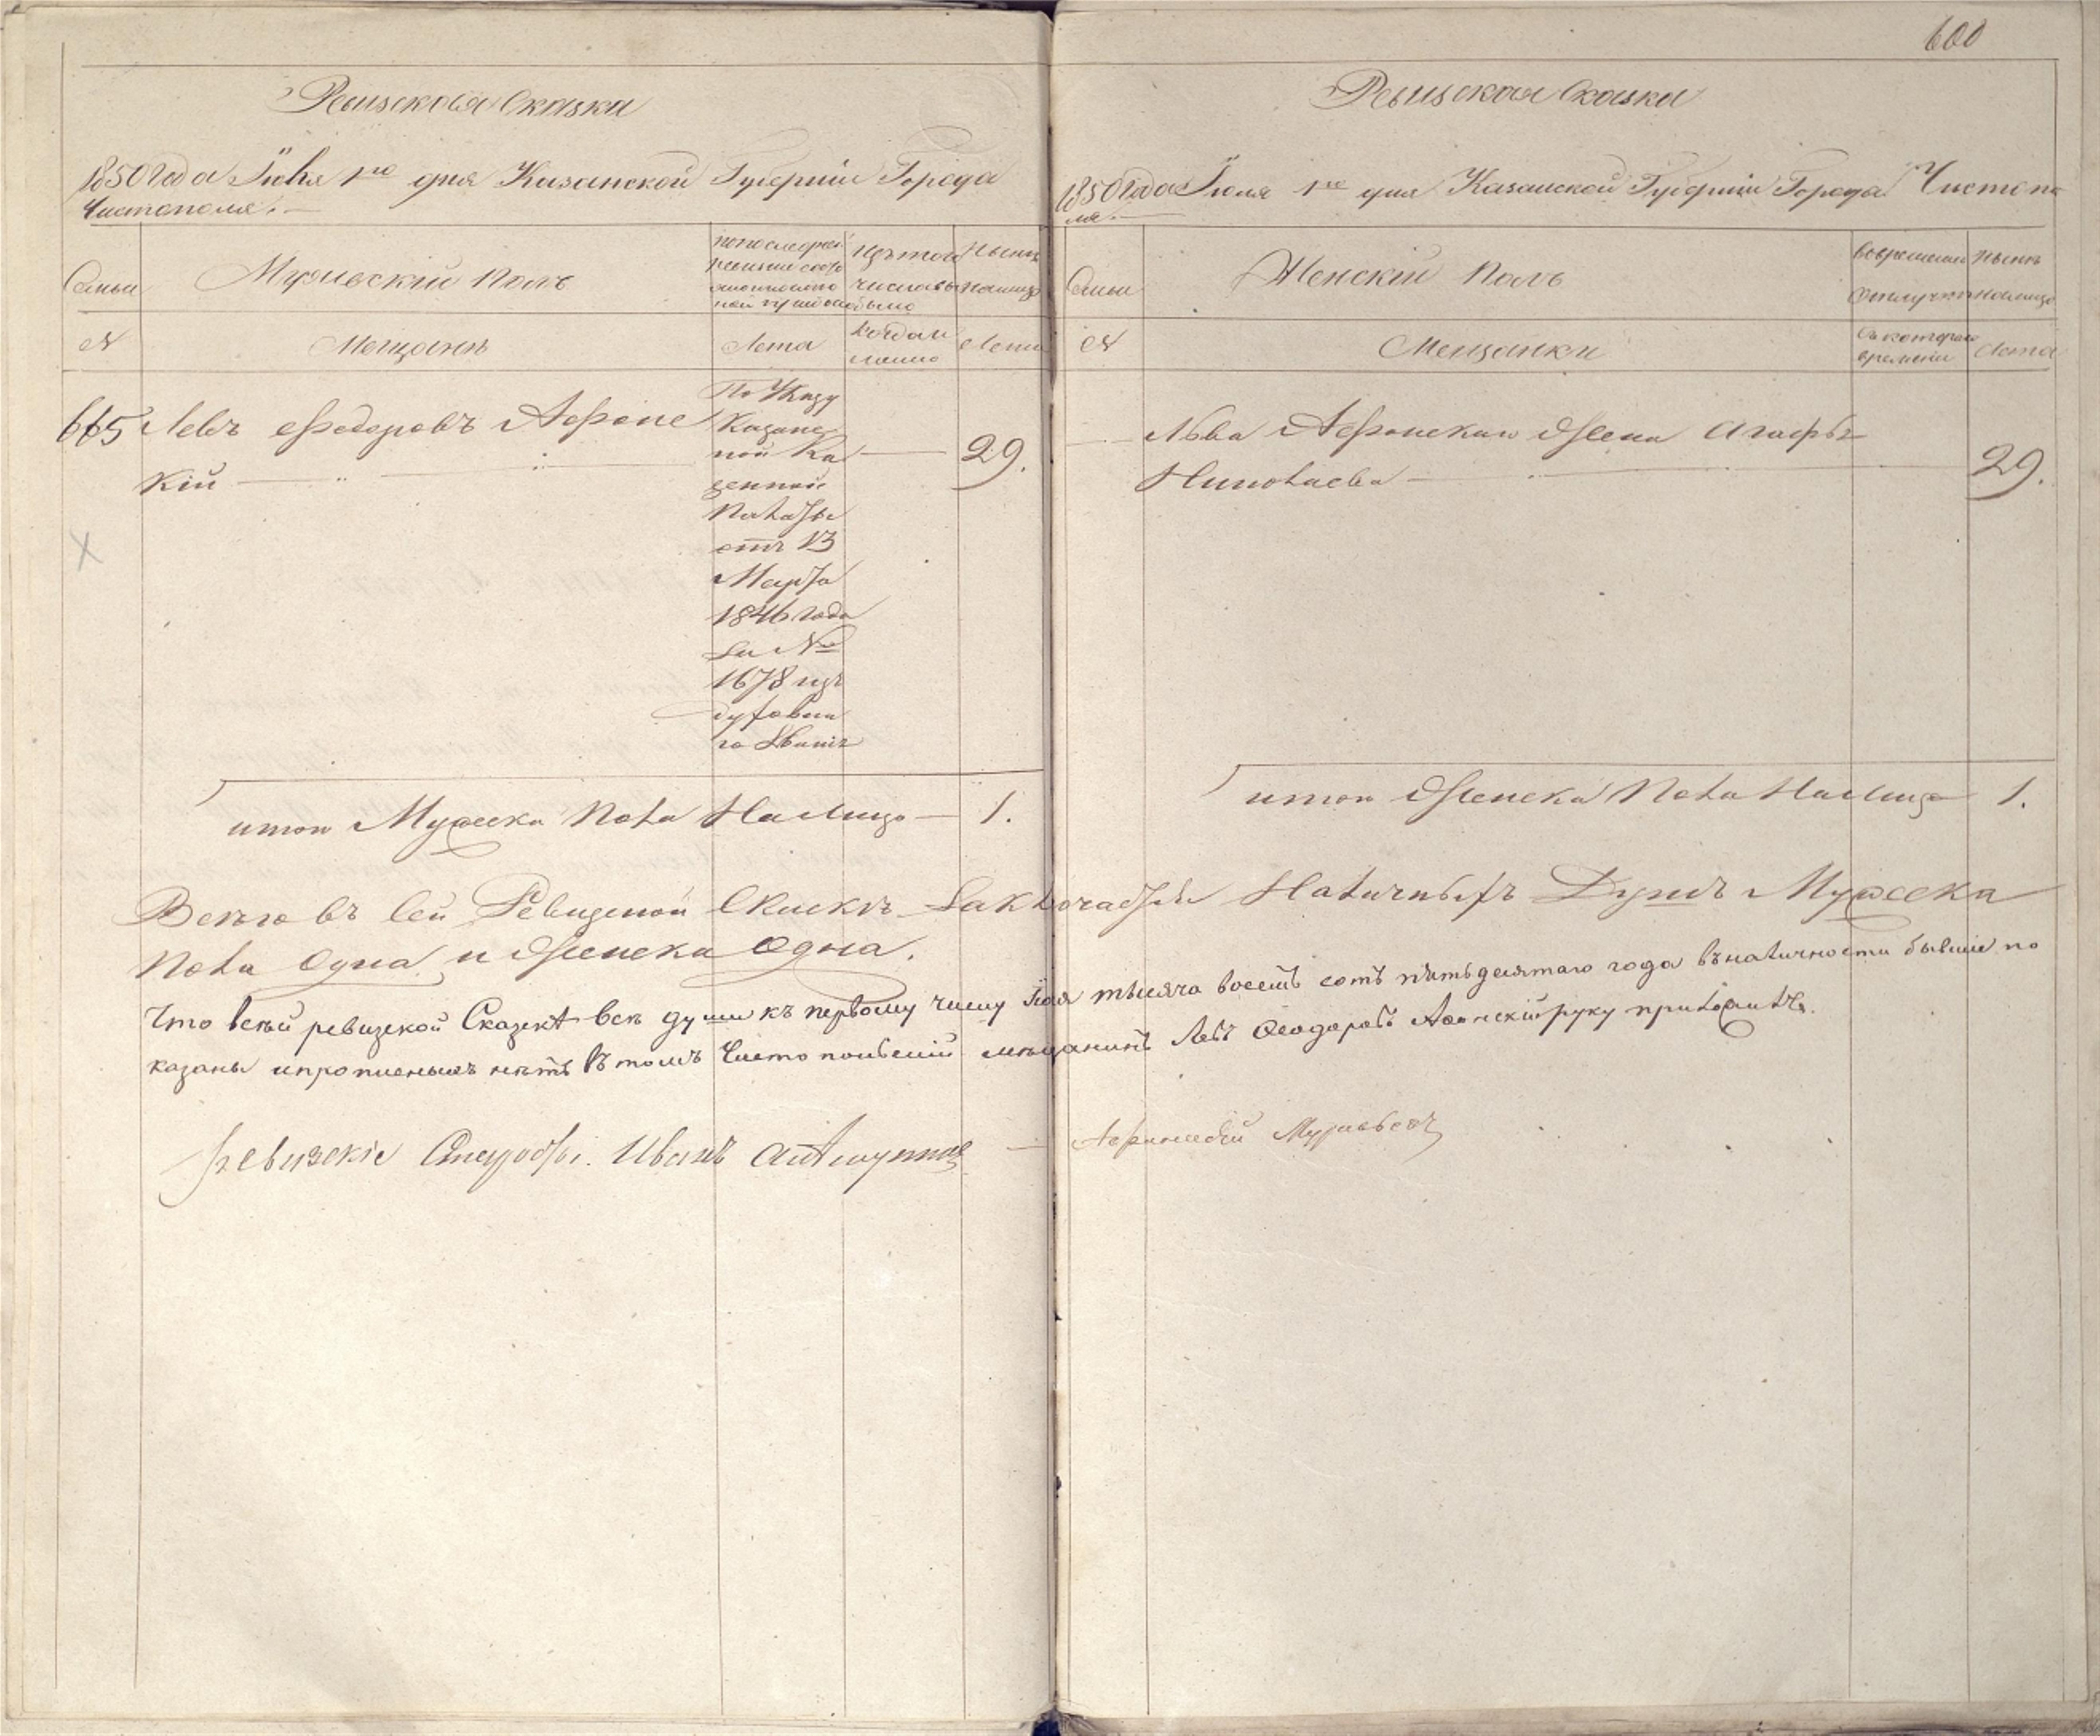 600
Ревизская Сказка
1850 года Июля 1го дня Казанской Губернии Города
Чистополя.
Семьи
Мужескій полъ
Изъ того
числа выбыло
Нынѣ
налицо
№
Мещанѣ
Лета
Когда и
Лета
665
Левъ Федоровъ Афонс
кій
По Указу
Казанс
кой Ка
зенной
Палаты
отъ 13
Марта
1846 года
за №
1678 изъ
духовна
го званія
29.
итого Мужеска Пола На Лицо 1.
Ревизская Сказка
1850 года Июля 1го дня Казанской Губерніи Города Чистопо
ля.
Семьи
Женскій полъ
Вовременной
отлучкѣ
Нынѣ
налицо
№
Мещанки
Съ котораго
времени
Лета
Льва Афонскаго Жена Агафья
Николаева
29.
итого Женска Пола На Лицо 1.
Всего въ сей Ревизской Сказкѣ Заключается Наличныхъ Душъ Мужеска
Пола Одна и Женска Одна.
Что всѣй ревизской Сказкѣ всѣ души къ первому числу Мая тысяча восемь сотъ пятьдесятаго года въ наличности бывшіе по
казаны и прописныхъ нѣтъ въ томъ Чистопольскій мещанинъ Левъ Феодоровъ Афонскій руку приложилъ.
Ревизскіе Иванъ